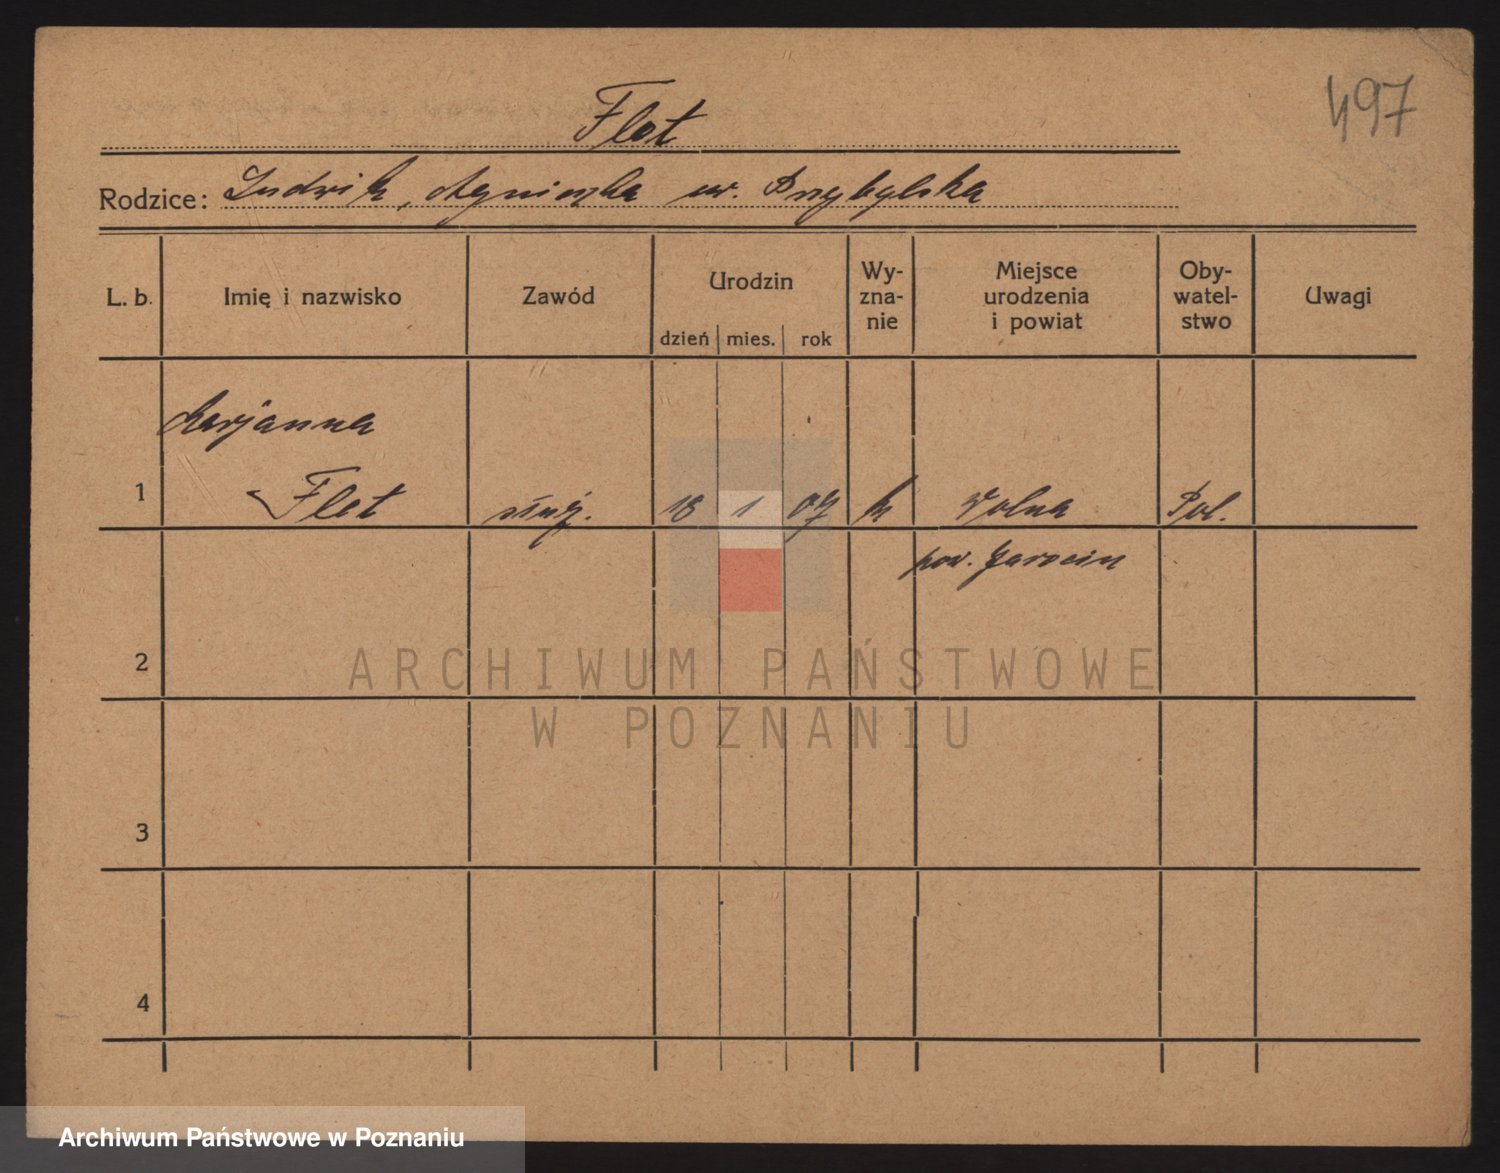 497
Flot
Rodzice: Ludwik, Agnieszka ur. Przybylska
L. b. Imię i nazwisko Zawód Urodzin dzień mies. rok Wy-zna-nie Miejsce urodzenia i powiat Oby-watel-stwo Uwagi
Marjanna
1 Flet służ. 18 1 07 k Pol.
pow. Jarocin
2
ARCHIWUM PAŃSTWOWE
W POZNANIU
3
4
Archiwum Państwowe w Poznaniu